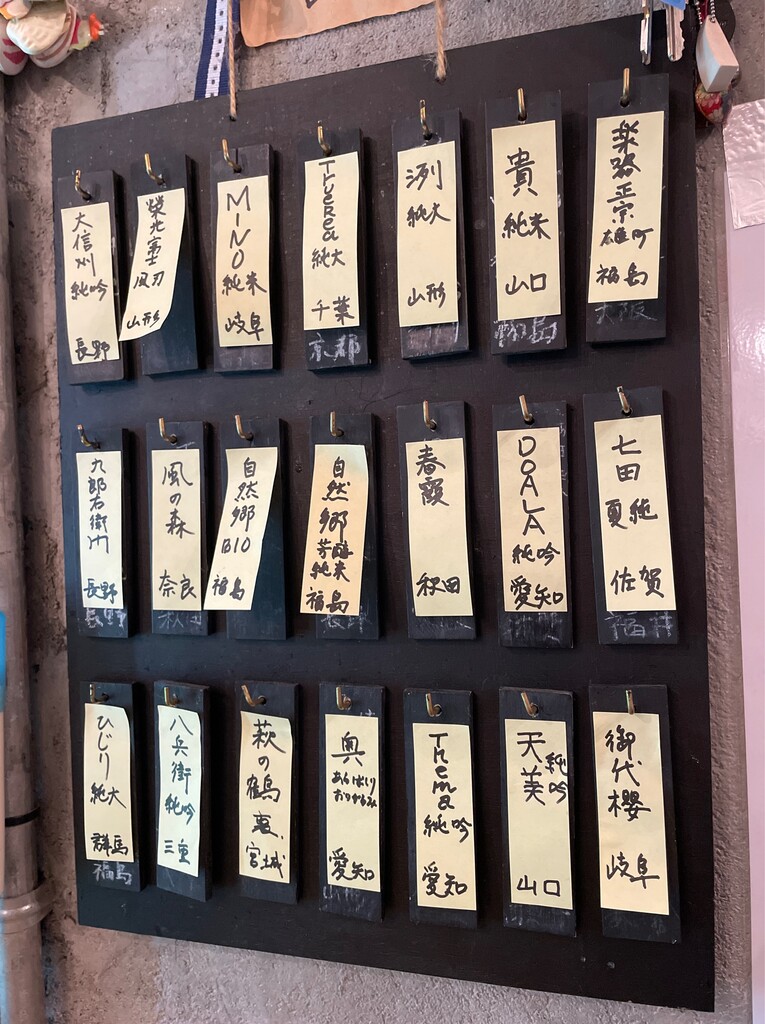 楽器正宗 雄町 福島
大阪
貴 純米 山口
洌 純大 山形
純大 千葉
京都
MINO 純米 岐阜
榮光冨士 山形
大信州 純吟 長野
七田 夏純 佐賀
福井
DOALA 純吟 愛知
春霞 秋田
自然郷 芳醇純米 福島
自然郷 BIO 福島
風の森 奈良
秋田
九郎右衛门 長野
長野
御代櫻 岐阜
天美 純吟 山口
Thema 純吟 愛知
奥 あらばしり おりがらみ 愛知
萩の鶴 裏 宮城
八兵衛 純吟 三重
ひじり 純大 群馬
福島